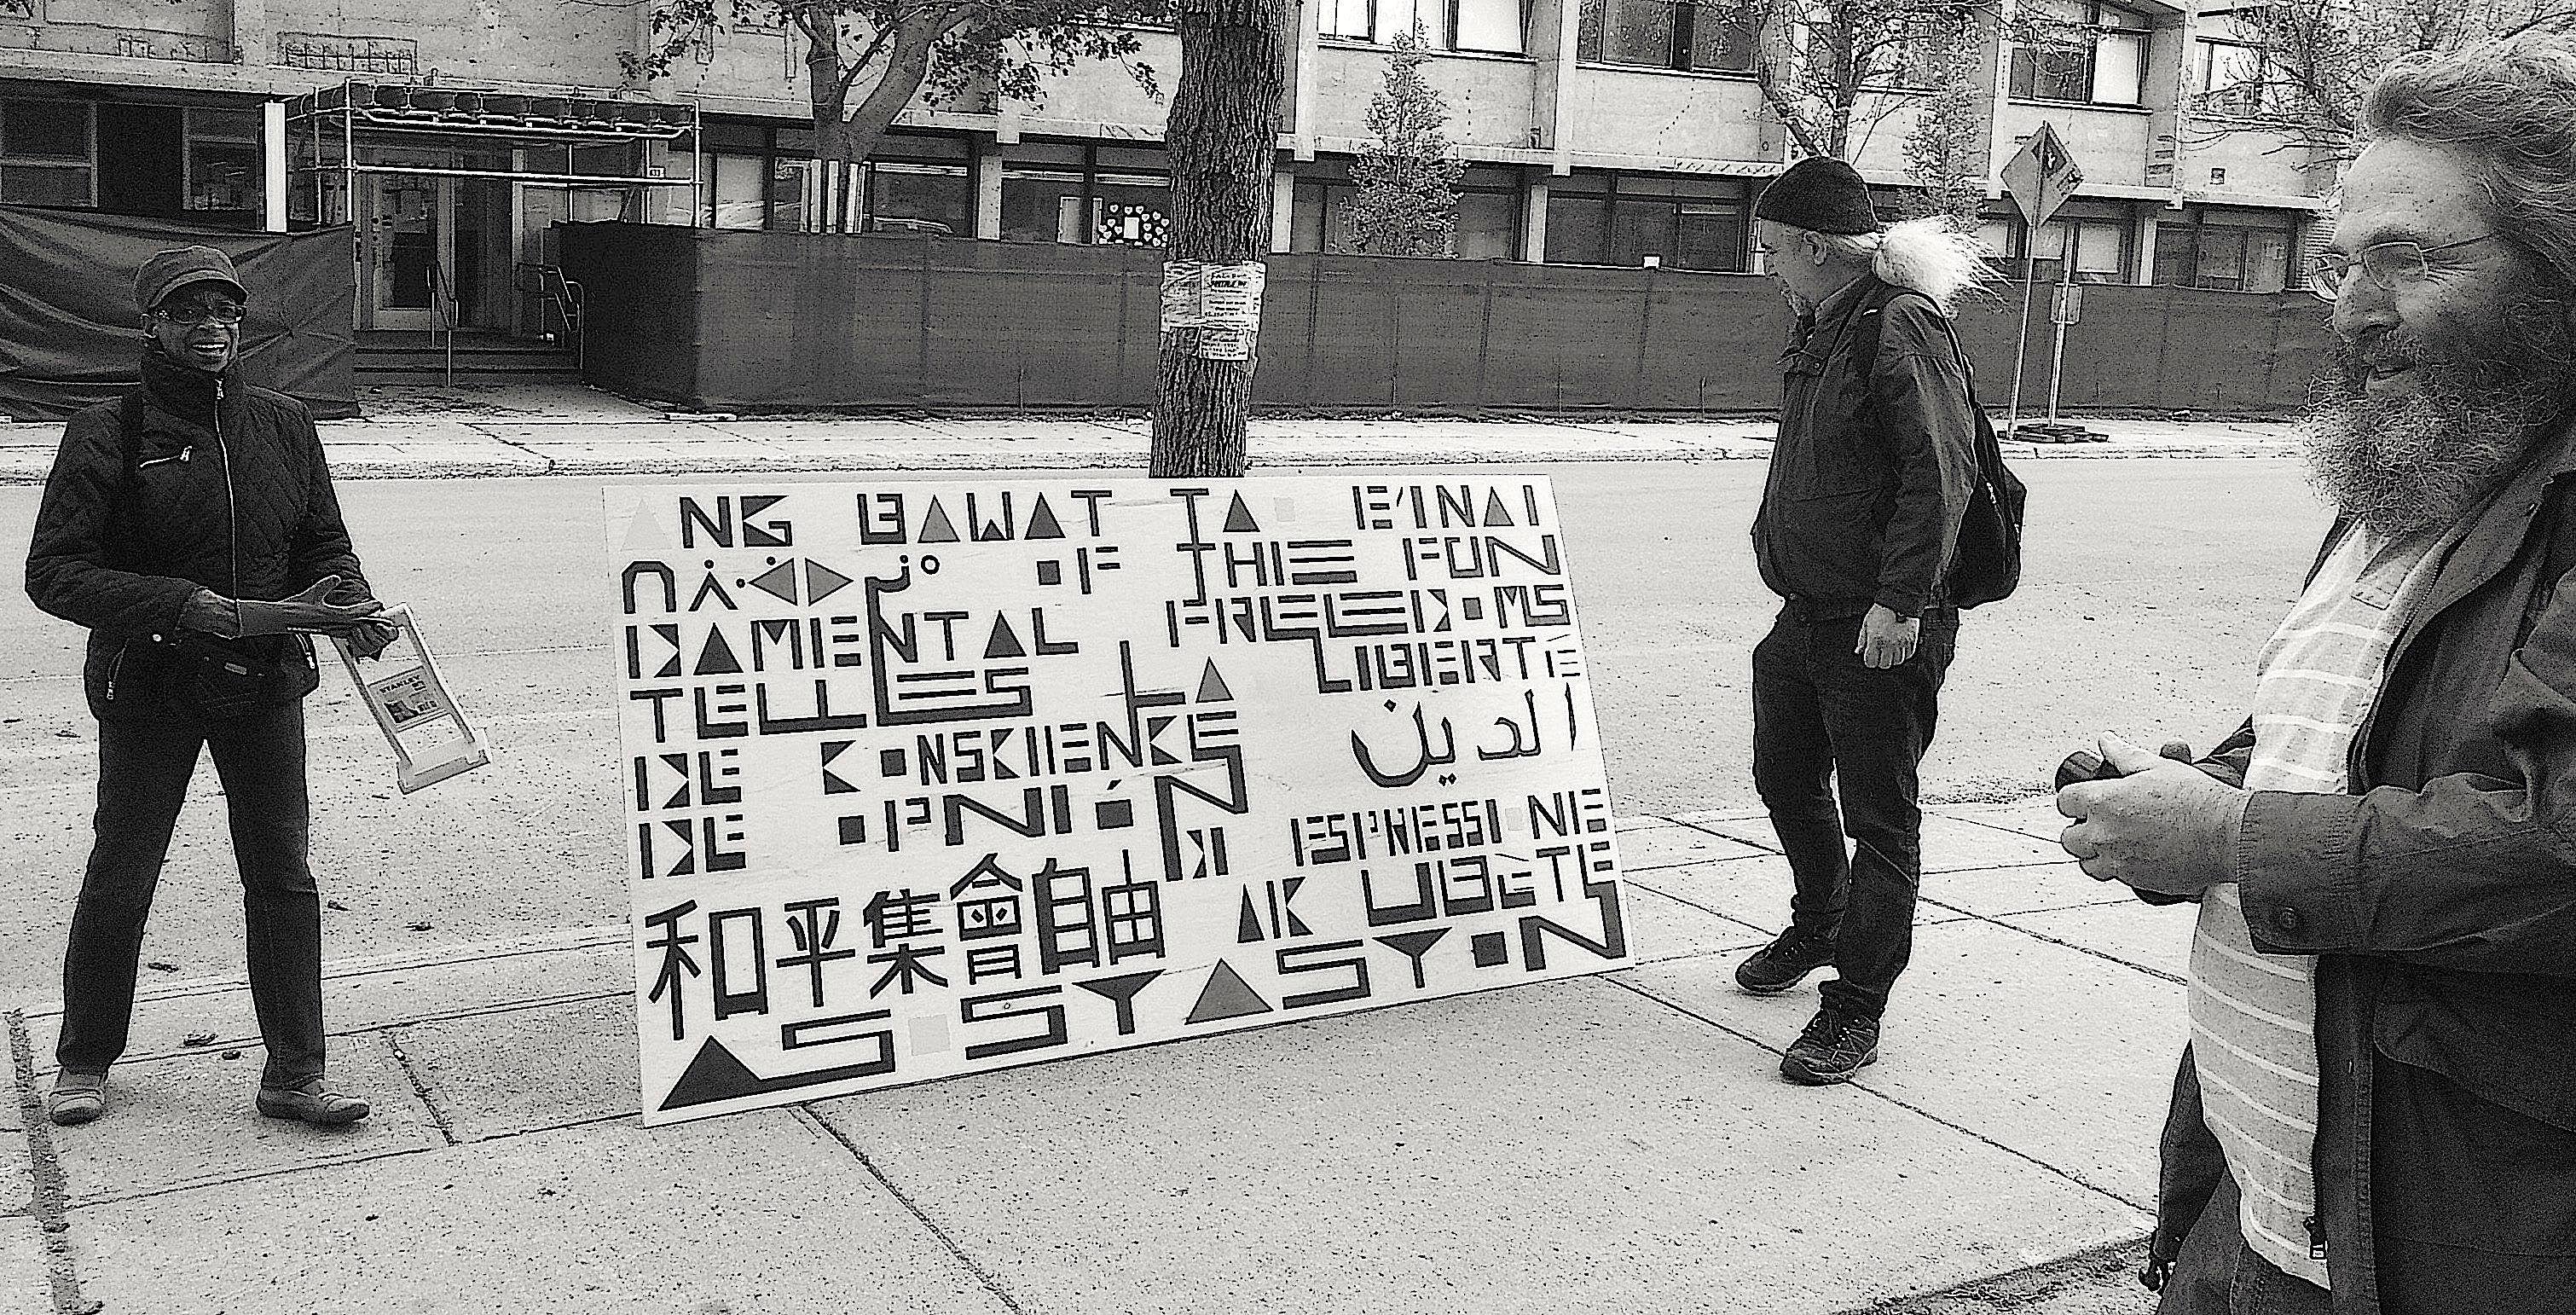 ANG BAWAT TAO EÍNAI
OF THE FUN
DAMENTAL FREEDOMS
TELLES LA LIBERTÉ
DE CONSCIENCE الدين
DE OPINIÓN DI ESPRESSIONE
和平集會自由 AK LIBÈTE
ASOSYASYON
STANLEY